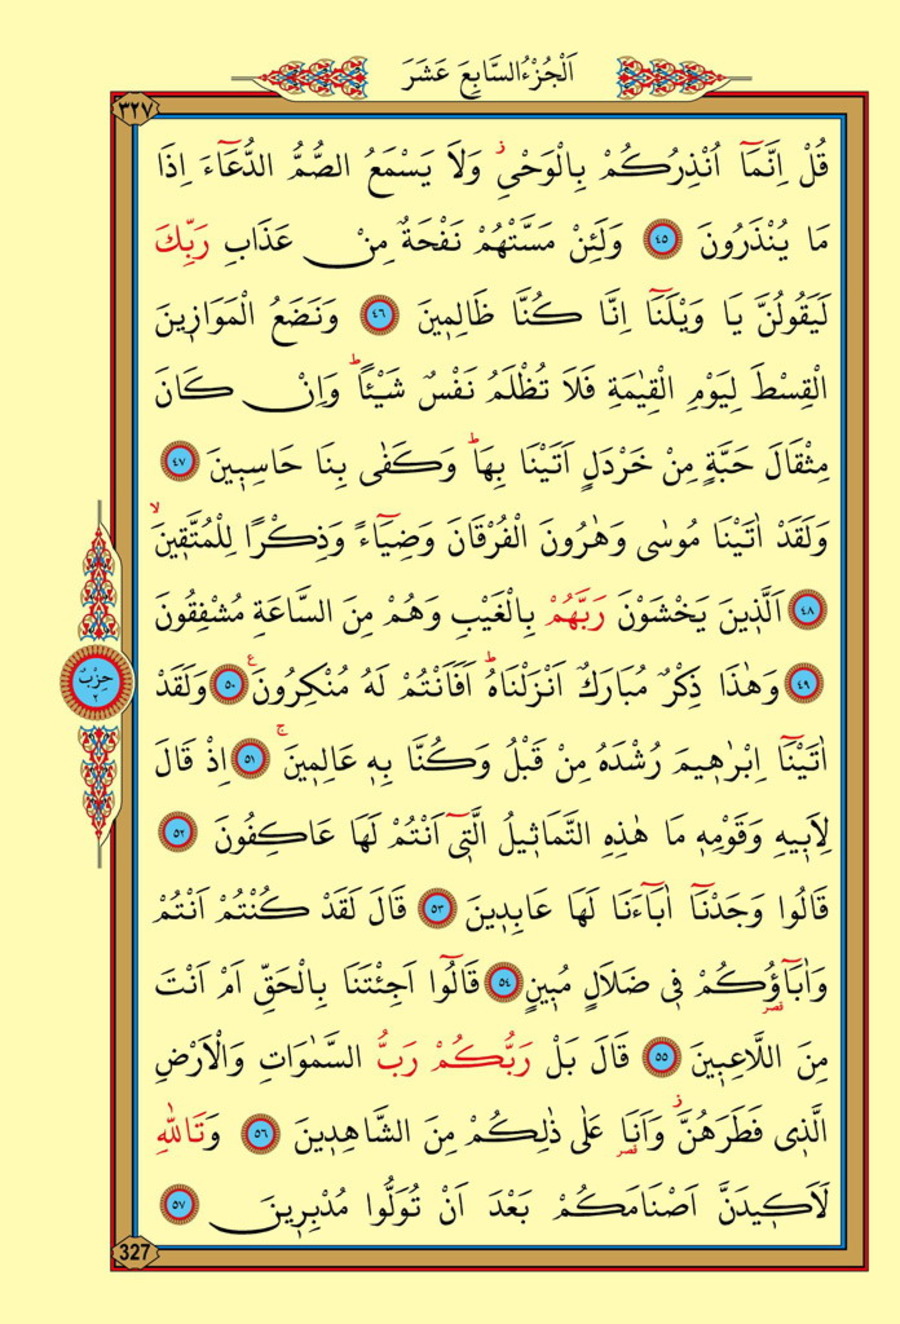 اَلْجُزْءُ السَّابِعَ عَشَرَ
٣٢٧
قُلْ اِنَّمَٓا اُنْذِرُكُمْ بِالْوَحْيِۘ وَلَا يَسْمَعُ الصُّمُّ الدُّعَٓاءَ اِذَا
مَا يُنْذَرُونَ ٤٥ وَلَئِنْ مَسَّتْهُمْ نَفْحَةٌ مِنْ عَذَابِ رَبِّكَ
لَيَقُولُنَّ يَا وَيْلَنَٓا اِنَّا كُنَّا ظَالِمٖينَ ٤٦ وَنَضَعُ الْمَوَازٖينَ
الْقِسْطَ لِيَوْمِ الْقِيٰمَةِ فَلَا تُظْلَمُ نَفْسٌ شَيْـًٔاؕ وَاِنْ كَانَ
مِثْقَالَ حَبَّةٍ مِنْ خَرْدَلٍ اَتَيْنَا بِهَاؕ وَكَفٰى بِنَا حَاسِبٖينَ ٤٧
وَلَقَدْ اٰتَيْنَا مُوسٰى وَهٰرُونَ الْفُرْقَانَ وَضِيَٓاءً وَذِكْرًا لِلْمُتَّقٖينَۙ
٤٨ اَلَّذٖينَ يَخْشَوْنَ رَبَّهُمْ بِالْغَيْبِ وَهُمْ مِنَ السَّاعَةِ مُشْفِقُونَ
٤٩ وَهٰذَا ذِكْرٌ مُبَارَكٌ اَنْزَلْنَاهُؕ اَفَاَنْتُمْ لَهُ مُنْكِرُونَ ع ٥٠ وَلَقَدْ
حِزْبٌ
٢
اٰتَيْنَٓا اِبْرٰهٖيمَ رُشْدَهُ مِنْ قَبْلُ وَكُنَّا بِهٖ عَالِمٖينَۚ ٥١ اِذْ قَالَ
لِاَبٖيهِ وَقَوْمِهٖ مَا هٰذِهِ التَّمَاثٖيلُ الَّتٖٓي اَنْتُمْ لَهَا عَاكِفُونَ ٥٢
قَالُوا وَجَدْنَٓا اٰبَٓاءَنَا لَهَا عَابِدٖينَ ٥٣ قَالَ لَقَدْ كُنْتُمْ اَنْتُمْ
وَاٰبَٓاؤُكُمْ فٖي ضَلَالٍ مُبٖينٍ ٥٤ قَالُٓوا اَجِئْتَنَا بِالْحَقِّ اَمْ اَنْتَ
قصر
مِنَ اللَّاعِبٖينَ ٥٥ قَالَ بَلْ رَبُّكُمْ رَبُّ السَّمٰوَاتِ وَالْاَرْضِ
الَّذٖي فَطَرَهُنَّؗ وَاَنَا عَلٰى ذٰلِكُمْ مِنَ الشَّاهِدٖينَ ٥٦ وَتَاللّٰهِ
قصر
لَاَكٖيدَنَّ اَصْنَامَكُمْ بَعْدَ اَنْ تُوَلُّوا مُدْبِرٖينَ ٥٧
327